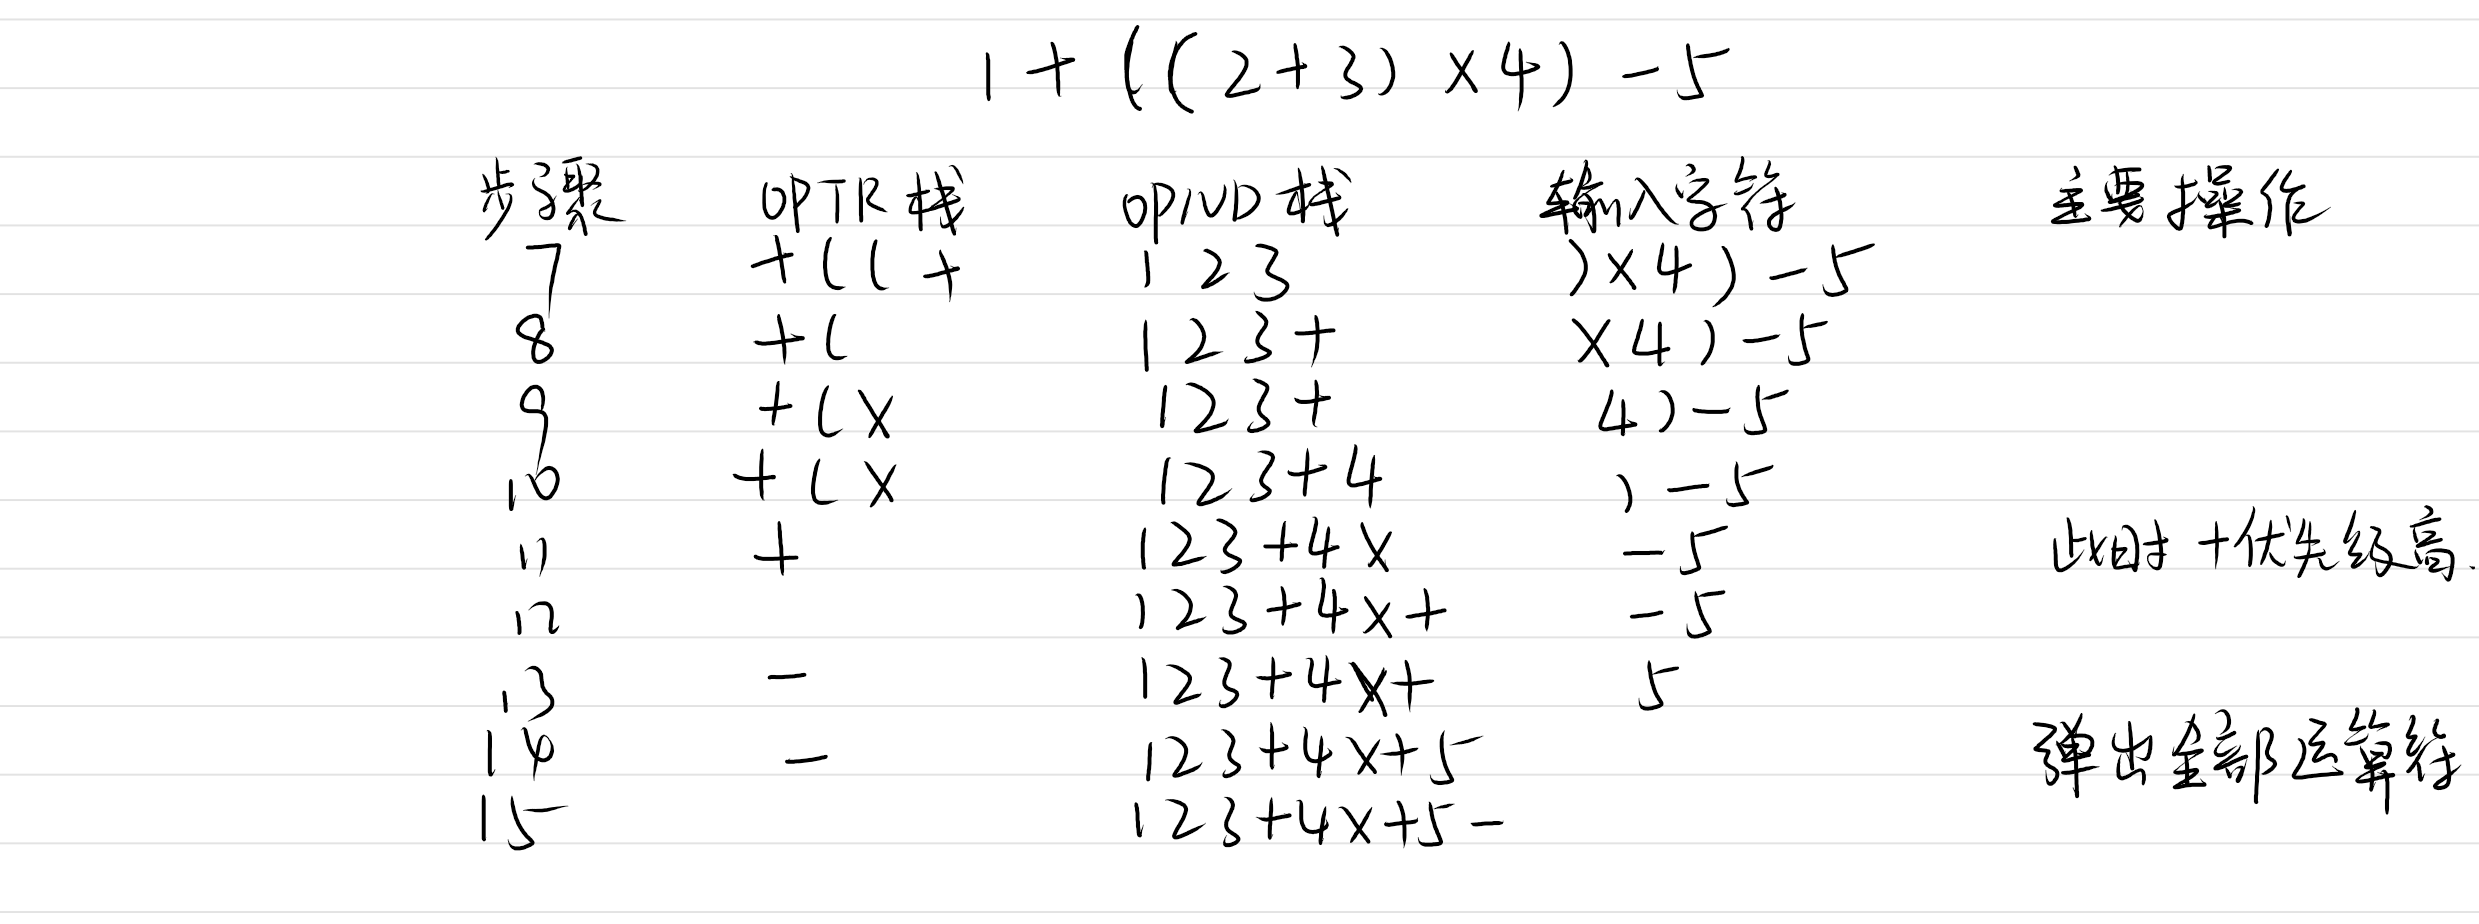 1 + ((2+3)×4) -5
步骤 OPTR栈 OPND栈 输入字符 主要操作
7 +((+ 123 )×4)-5
8 +( 123+ ×4)-5
9 +(× 123+ 4)-5
10 +(× 123+4 )-5
11 + 123+4× -5 此时+优先级高.
12 123+4×+ -5
13 - 123+4×+ 5
14 - 123+4×+5 弹出全部运算符
15 123+4×+5-